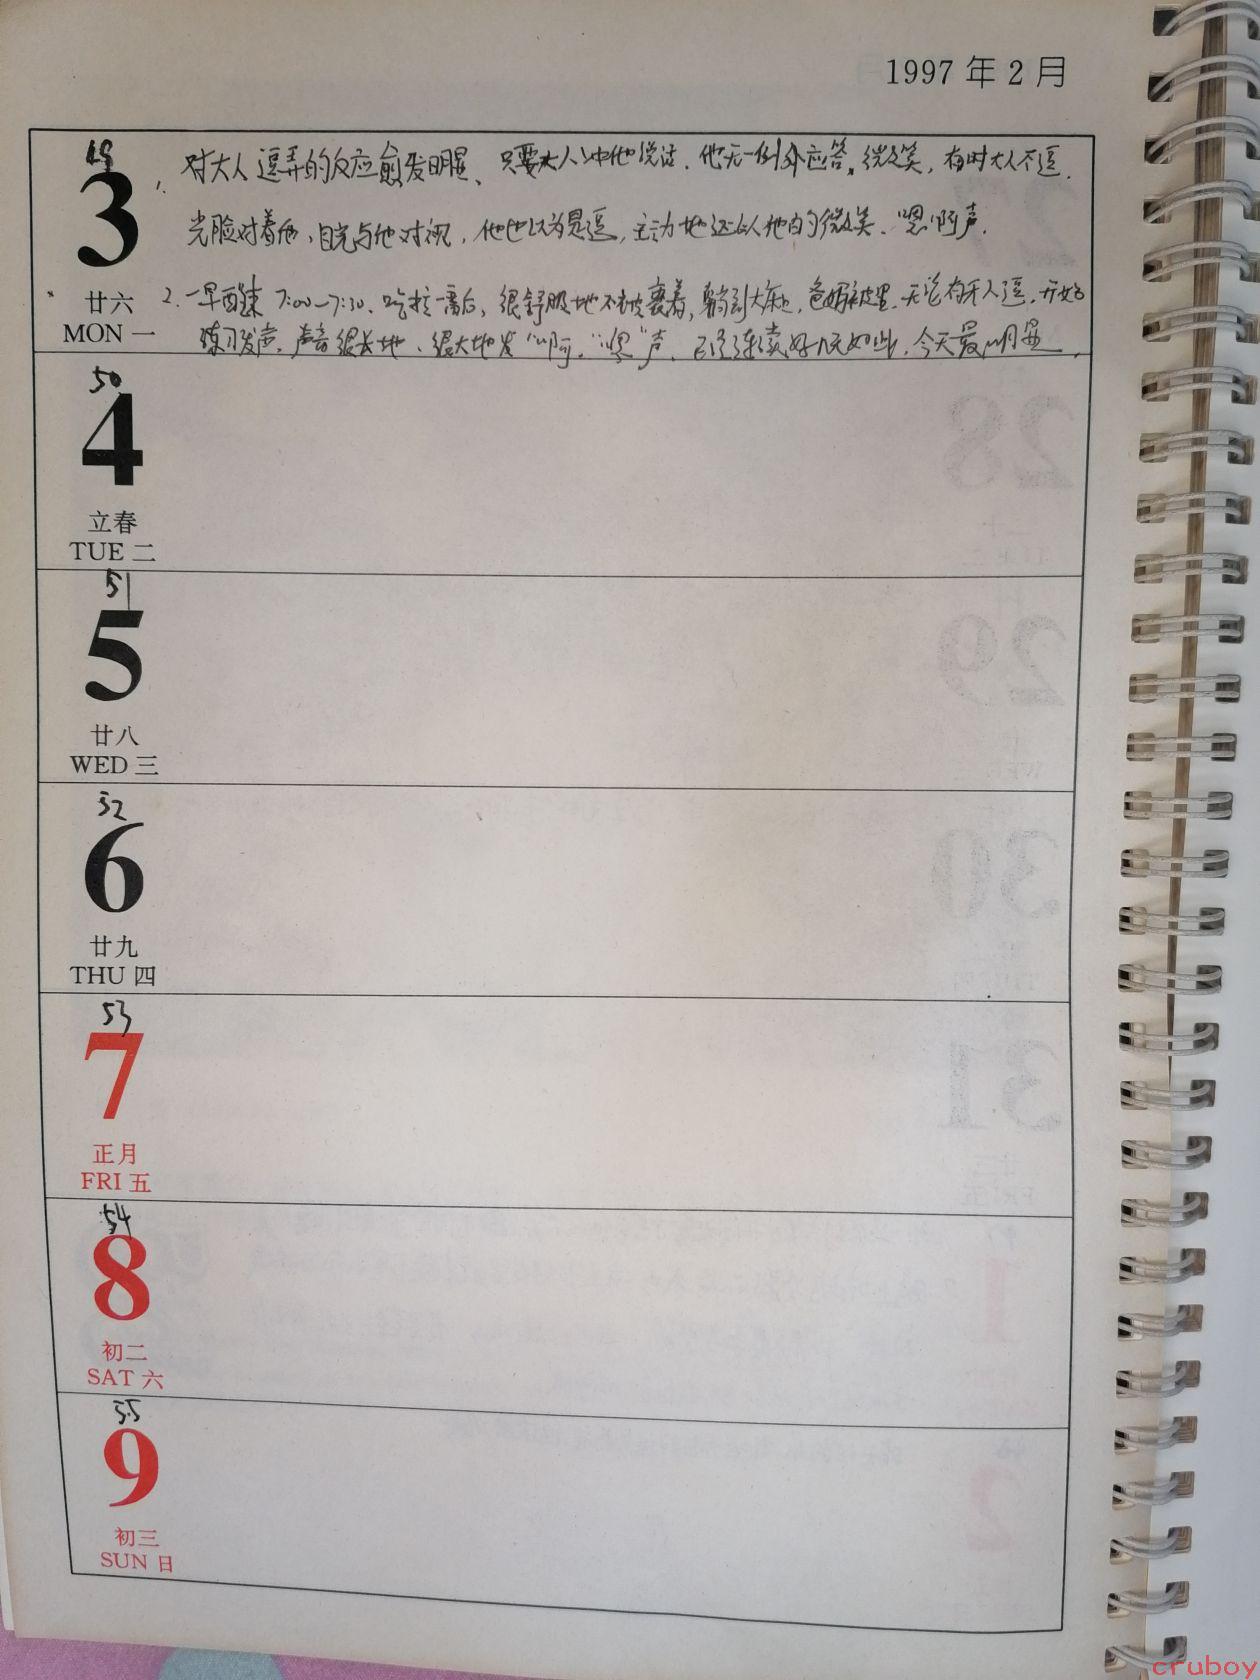 1997 年 2 月
49
3
廿六
MON 一
1. 对大人逗弄的反应愈发明显、只要大人冲他说话,他无一例外应答,微笑,有时大人不逗,
光脸对着他,目光与他对视,他也以为是逗,主动地还以他的微笑、嗯啊声.
2. 一早醒来 7:00—7:30,吃拉一番后,很舒服地不被裹着,躺到大床,爸妈被里,无论有无人逗,开始
练习发声,声音很长地、很大地发“啊,“嗯”声,已经连续好几天如此,今天最明显.
50
4
立春
TUE 二
51
5
廿八
WED 三
52
6
廿九
THU 四
53
7
正月
FRI 五
54
8
初二
SAT 六
55
9
初三
SUN 日
cruboy